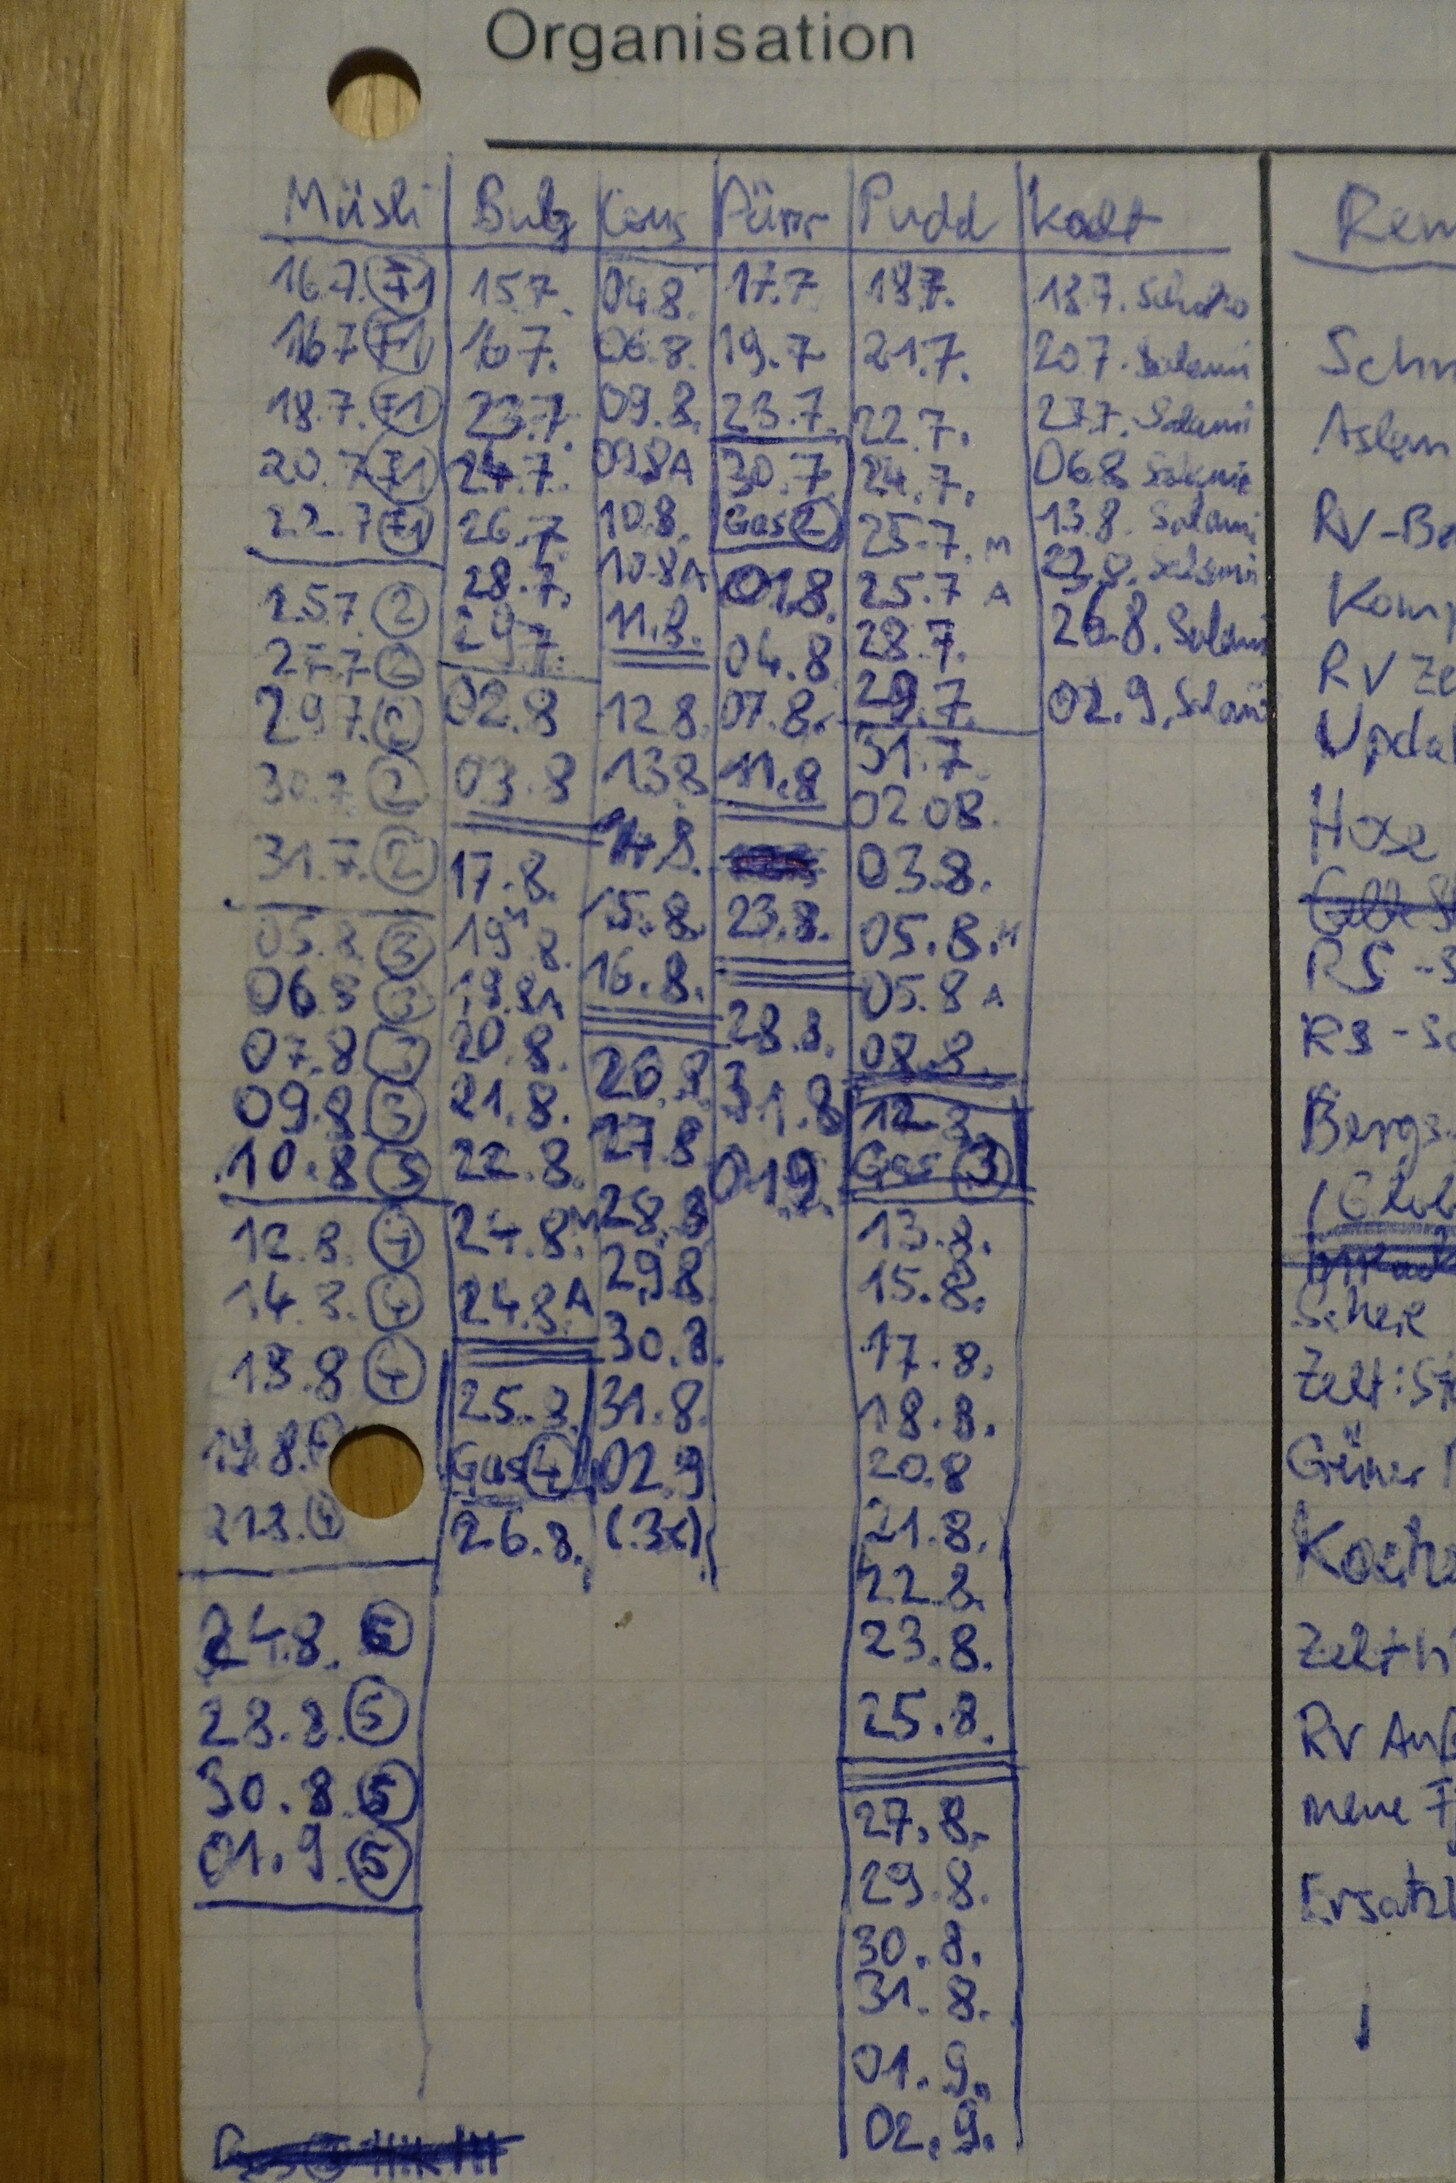 Organisation
Müsli Bulg Cous Pürr Pudd Kalt
16.7. F1 15.7. 04.8. 17.7 18.7. 18.7. Schoko
16.7 F1 16.7. 06.8. 19.7 21.7. 20.7. Salami
18.7. F1 23.7. 09.8. 23.7. 22.7. 27.7. Salami
20.7 F1 24.7. 09.8 A 30.7. 24.7. 06.8 Salamie
22.7 F1 26.7. 10.8. Gas 2 25.7. M 13.8. Salami
25.7 2 28.7. 10.8 A 01.8. 25.7 A 23.8. Salami
27.7 2 29.7. 11.8. 04.8 28.7. 26.8. Salami
29.7. 2 02.8 12.8. 07.8. 29.7. 02.9. Salami
30.7. 2 03.8 13.8. 11.8 31.7.
31.7. 2 17.8. 14.8. 02.08.
05.8. 3 19.8. M 15.8. 23.8. 03.8.
06.8 3 19.8 A 16.8. 28.8. 05.8. M
07.8 3 20.8. 26.8 31.8 05.8 A
09.8 3 21.8. 27.8 01.9. 08.8.
10.8 3 22.8. 28.8 12.8.
12.8. 4 24.8. M 29.8 Gas 3
14.8. 4 24.8. A 30.8. 13.8.
18.8 4 25.8. 31.8. 15.8.
19.8. Gas 4 02.9 17.8.
21.8. 4 26.8. (3x) 18.8.
24.8. 5 20.8
28.8. 5 21.8.
30.8. 5 22.8.
01.9. 5 23.8.
25.8.
27.8.
29.8.
30.8.
31.8.
01.9.
02.9.
RV
RV
RS
RS
RV